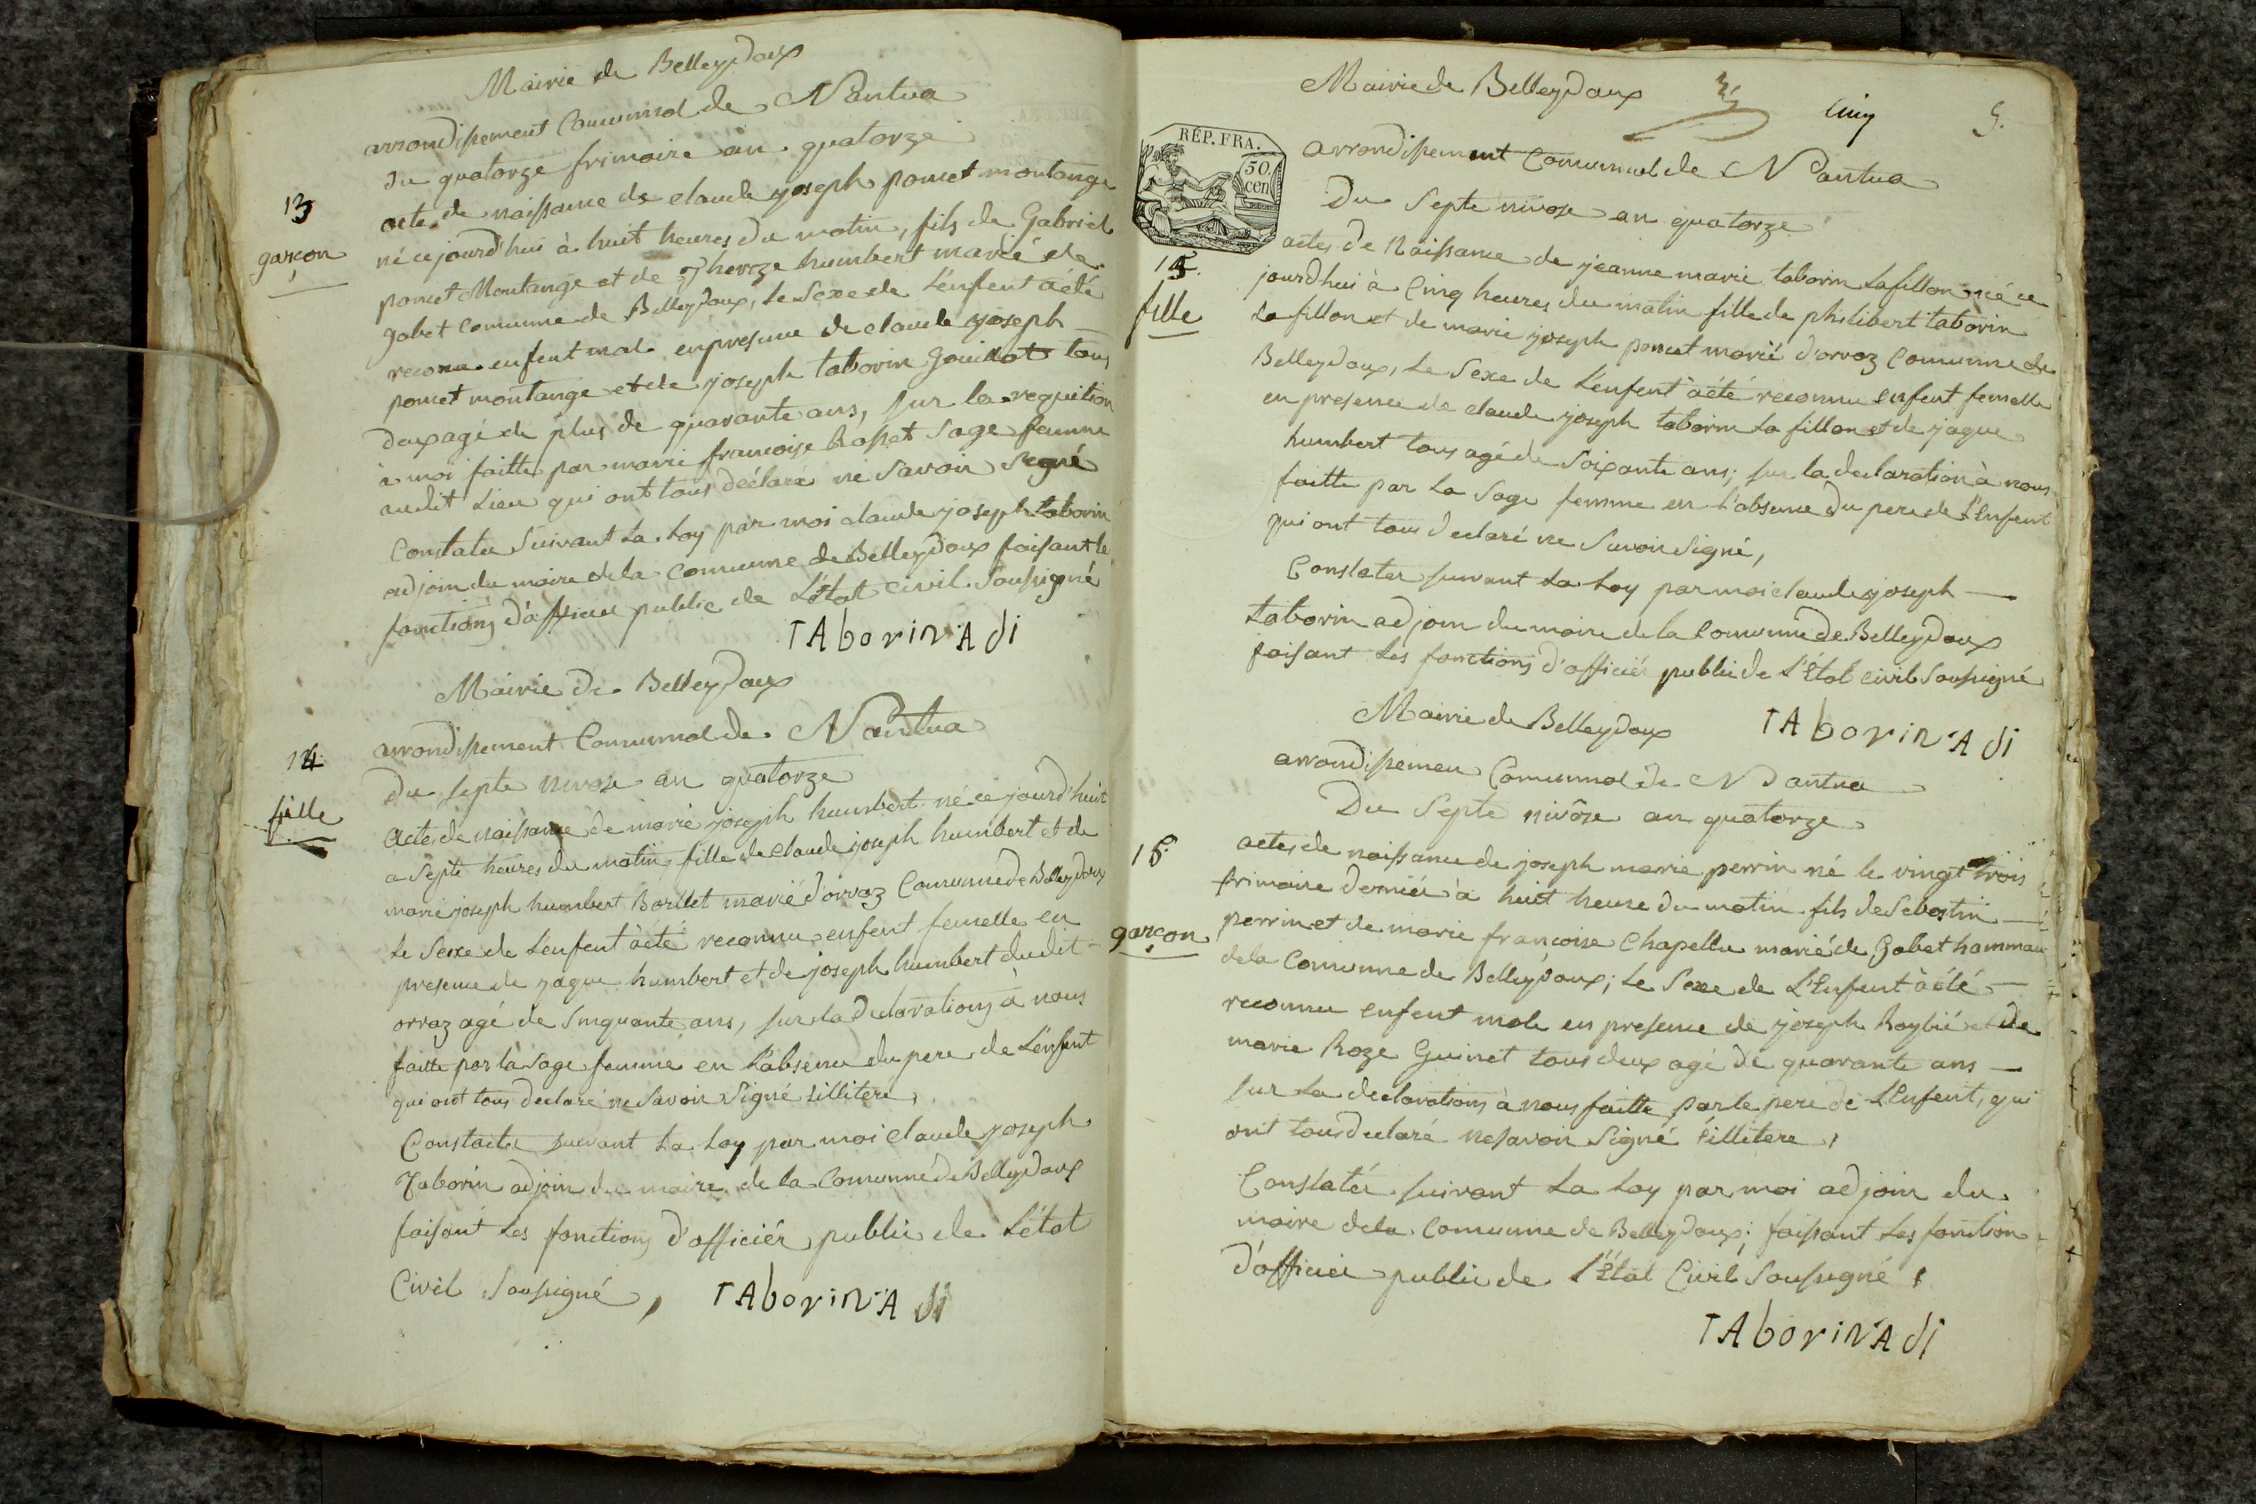 Mairie de Belleydoux
arrondissement Communal de Nantua
du quatorze frimaire an quatorze
13
garçon
acte de naissance de claude joseph poncet montange
né cejourd'hui à huit heures du matin, fils de Gabriel
poncet Montange et de thereze humbert marié de
gobet comunne de Belleydoux, le sexe de l'enfent àété
reconu enfent mal en presence de claude joseph
poncet montange et de joseph taborin Gouillot tous
deux agé de plus de quarante ans, sur la requition
à moi faitte par marie francoise Rosset sage femme
audit Lieu qui ont tous déclaré ne savoir segné
Constater suivant La Loy par moi claude joseph taborin
adjoin du maire dela comunne de Belleydoux faisant le
fonctions d'afficier public de L'état civil soussigné
TAborin Adi
Mairie de Belleydoux
arrondissement Communal de Nantua
14
du septe nivose an quatorze
fille
Acte de naissance de marie joseph humbert né ce jourd'huit
a septe heures du matin fille de claude joseph humbert et de
marie joseph humbert Borllet marié d'orvaz Comunne de Belleydoux
Le sexe de L'enfent àété reconnu enfent femelle en
presence de jaque humbert et de joseph humbert dudit
orvaz agé de sinquante ans, sur la declarations à nous
faitte par la sage femme en L'absence du pere de L'enfent
qui ont tous declaré ne savoir signé sillitere,
Constater suivant La Loy par moi claude joseph
Taborin adjoin du maire de la Comunne de Belleydoux
faisant Les fonctions d'officiér public de L'état
Civil soussigné, TAborin Adi
Mairie de Belleydoux
Cinq
5.
RÉP. FRA.
50.
cen
arrondissement Communal de Nantua
Du septe nivose an quatorze
15.
fille
actes de Naissance de jeanne marie taborin Lafillon né ce
jourd'hui à Cinq heures du matin fille de philibert taborin
La fillon et de marie joseph poncet marié d'orvaz Comunne de
Belleydoux, Le Sexe de L'enfent àété reconnu enfent femelle
en presence de claude joseph taborin La fillon et de jaque
humbert tous agé de soixante ans; sur la declaration à nous
faitte par La Sage femme en L'absence du pere de L'Enfent
qui ont tous declaré ne savoir signé,
Constater suivant La Loy par moi claude joseph
taborin adjoin du maire de la Comunne de Belleydoux
faisant Les fonctions d'officiér public de L'État civil soussigné
TAborin Adi
Mairie de Belleydoux
arrondissemen Communal de Nantua
Du Septe nivôse an quatorze
16
garçon
actes de naissance de joseph marie perrin né le vingt trois
frimaire derniér à huit heure du matin fils de Sebastin
perrin et de marie françoise Chapellu marié de Gobet hammau
dela Comunne de Belleydoux; Le Sexe de L'Enfent àété
reconnu enfent male en presence de joseph Roybié et de
marie Roze Guinet tous deux agé de quarante ans
sur La declarations à nous faitte par le pere de L'Enfent, qui
ont tous declaré nesavoir signé sillitere,
Constatér suivant La Loy par moi adjoin du
maire dela Comunne de Belleydoux; faissant Les fonction
d'officier public de L'État Civil soussigné,
TAborin Adi